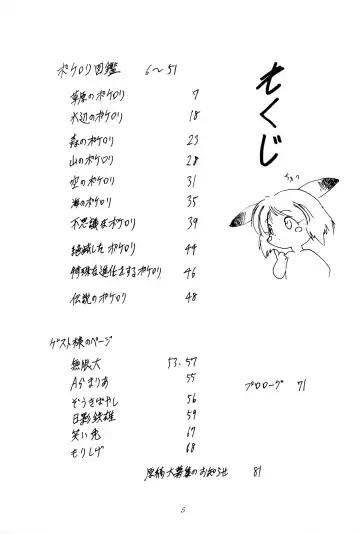 もくじ
ポケロリ図鑑 6〜51
草原のポケロリ 7
水辺のポケロリ 18
森のポケロリ 23
山のポケロリ 28
空のポケロリ 31
海のポケロリ 35
不思議なポケロリ 39
絶滅したポケロリ 44
特殊な進化をするポケロリ 46
伝説のポケロリ 48
ゲスト様のページ
無限大 53・57
Aらまりあ 55
ぞうきばやし 56
日影鉄雄 59
笑い兎 67
もりしげ 68
プロローグ 71
原稿大募集のお知らせ 81
5